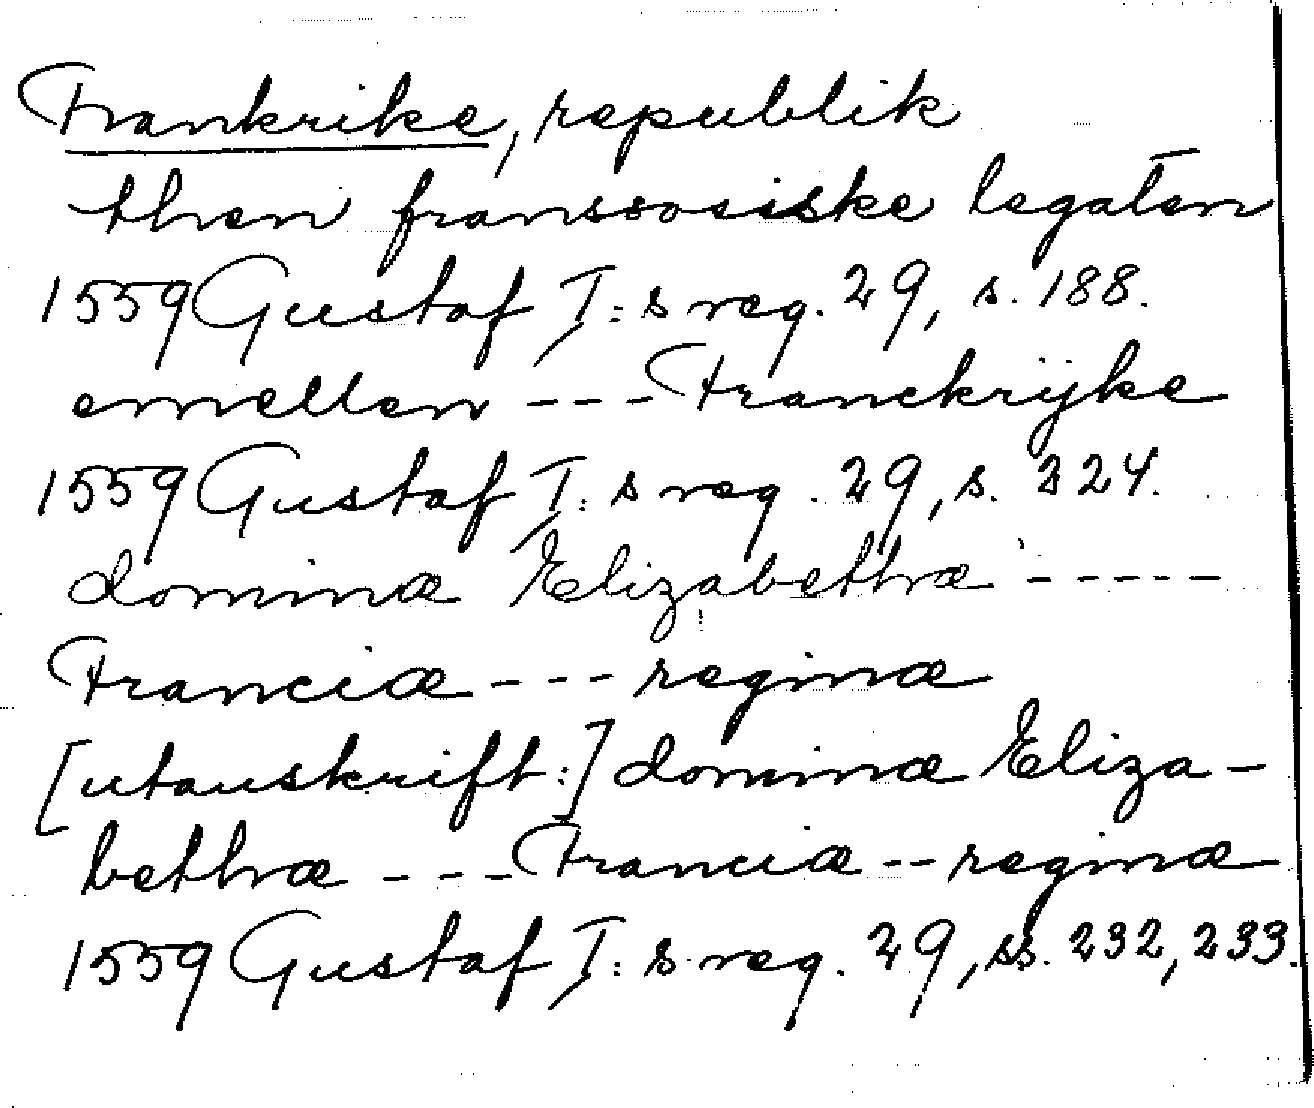 Frankrike, republik
then franssosiske legaten
1559 Gustaf I:s reg. 29, s. 188.
emellen --- Franckrijke
1559 Gustaf I:s reg. 29, s. 224.
dominæ Elizabethæ -----
Franciæ --- reginæ
[utanskrift:] dominæ Eliza-
bethæ --- Franciæ -- reginæ
1559 Gustaf I:s reg. 29, ss. 232, 233.